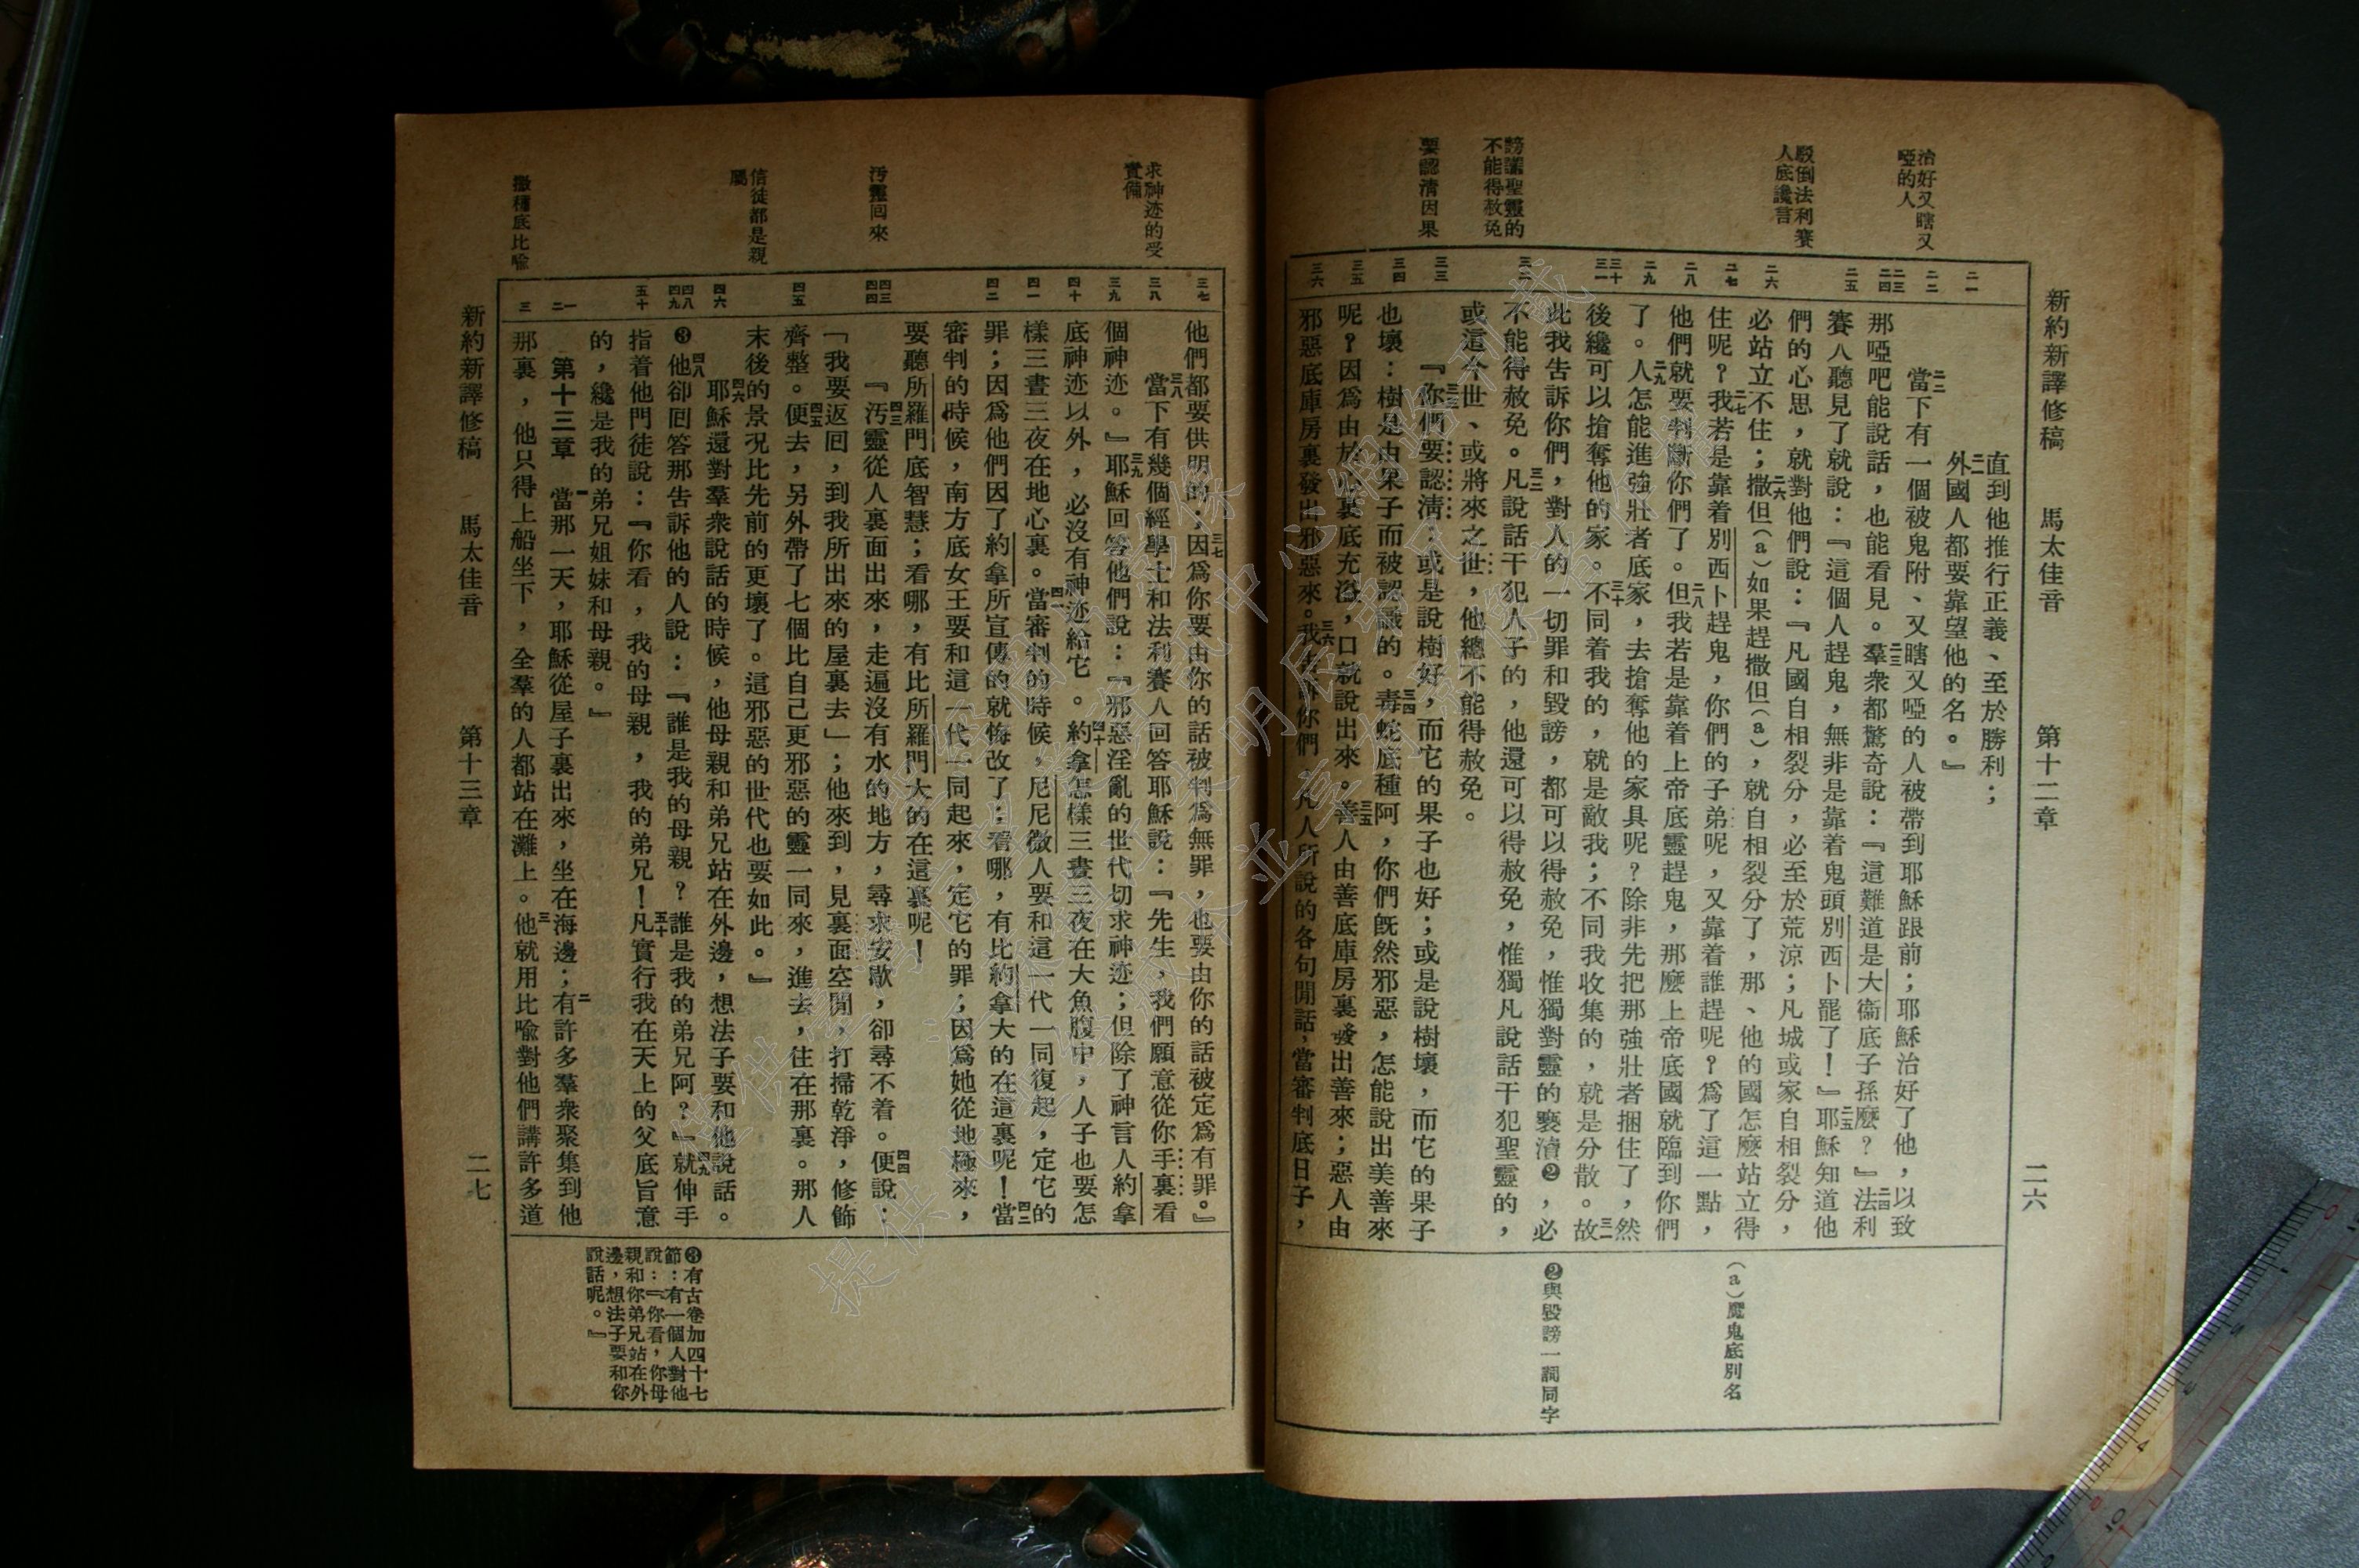 新約新譯修稿　馬太佳音　第十二章　二六
治好又瞎又
啞的人
駁倒法利賽
人底讒言
謗讟聖靈的
不能得赦免
要認清因果
二一
二二
二三
二四
二五
二六
二七
二八
二九
三十
三一
三二
三三
三四
三五
三六
直到他推行正義、至於勝利；
二一外國人都要靠望他的名。』
二二當下有一個被鬼附、又瞎又啞的人被帶到耶穌跟前；耶穌治好了他，以致
那啞吧能說話，也能看見。二三羣衆都驚奇說：『這難道是大衞底子孫麽？』二四法利
賽人聽見了就說：『這個人趕鬼，無非是靠着鬼頭別西卜罷了！』二五耶穌知道他
們的心思，就對他們說：『凡國自相裂分，必至於荒涼；凡城或家自相裂分，
必站立不住；二六撒但(a)如果趕撒但(a)，就自相裂分了，那、他的國怎麽站立得
住呢？二七我若是靠着別西卜趕鬼，你們的子弟呢，又靠着誰趕呢？爲了這一點，
他們就要判斷你們了。二八但我若是靠着上帝底靈趕鬼，那麽上帝底國就臨到你們
了。二九人怎能進強壯者底家，去搶奪他的家具呢？除非先把那強壯者捆住了，然
後纔可以搶奪他的家。三十不同着我的，就是敵我；不同我收集的，就是分散。三一故
此我告訴你們，對人的一切罪和毀謗，都可以得赦免，惟獨對靈的褻瀆❷，必
不能得赦免。三二凡說話干犯人子的，他還可以得赦免，惟獨凡說話干犯聖靈的，
或這今世、或將來之世，他總不能得赦免。
三三『你們要認清：或是說樹好，而它的果子也好；或是說樹壞，而它的果子
也壞：樹是由果子而被認識的。三四毒蛇底種阿，你們旣然邪惡，怎能說出美善來
呢？因爲由於心裏底充溢，口就說出來。三五善人由善底庫房裏發出善來；惡人由
邪惡底庫房裏發出邪惡來。三六我告訴你們，凡人所說的各句閒話，當審判底日子，
(a)魔鬼底別名
❷與毀謗一詞同字
求神迹的受
責備
汚靈囘來
信徒都是親
屬
撒種底比喩
三七
三八
三九
四十
四一
四二
四三
四四
四五
四六
四八
四九
五十
一
二
三
他們都要供明的；三七因爲你要由你的話被判爲無罪，也要由你的話被定爲有罪。』
三八當下有幾個經學士和法利賽人回答耶穌說：『先生，我們願意從你手裏看
個神迹。』三九耶穌回答他們說：『邪惡淫亂的世代切求神迹；但除了神言人約拿
底神迹以外，必沒有神迹給它。四十約拿怎樣三晝三夜在大魚腹中，人子也要怎
樣三晝三夜在地心裏。四一當審判的時候，尼尼微人要和這一代一同復起，定它的
罪；因爲他們因了約拿所宣傳的就悔改了；看哪，有比約拿大的在這裏呢！四二當
審判的時候，南方底女王要和這一代一同起來，定它的罪；因爲她從地極來，
要聽所羅門底智慧；看哪，有比所羅門大的在這裏呢！
四三『汚靈從人裏面出來，走遍沒有水的地方，尋求安歇，卻尋不着。四四便說：
「我要返囘，到我所出來的屋裏去」；他來到，見裏面空閒，打掃乾淨，修飾
齊整。四五便去，另外帶了七個比自己更邪惡的靈一同來，進去，住在那裏。那人
末後的景況比先前的更壞了。這邪惡的世代也要如此。』
四六耶穌還對羣衆說話的時候，他母親和弟兄站在外邊，想法子要和他說話。
❸四八他卻囘答那告訴他的人說：『誰是我的母親？誰是我的弟兄阿？』四九就伸手
指着他門徒說：『你看，我的母親，我的弟兄！五十凡實行我在天上的父底旨意
的，纔是我的弟兄姐妹和母親。』
第十三章　一當那一天，耶穌從屋子裏出來，坐在海邊；二有許多羣衆聚集到他
那裏，他只得上船坐下，全羣的人都站在灘上。三他就用比喩對他們講許多道
❸有古卷加四十七
節：有一個人對他
說：『你看，你母
親和你弟兄站在外
邊，想法子要和你
說話呢。』
新約新譯修稿　馬太佳音　第十三章　二七